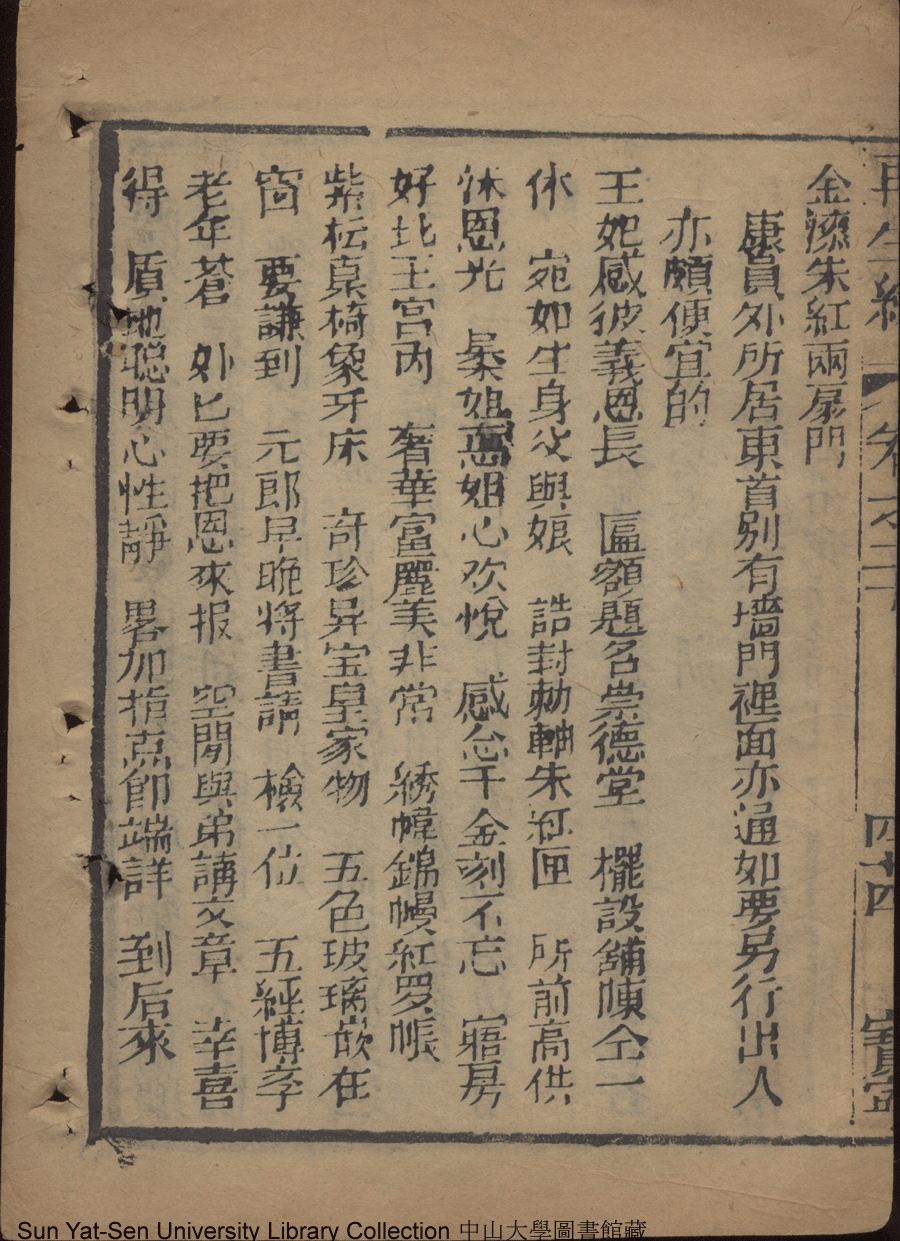 再生縁 卷之二十 四十四 寶寧
金漆朱紅兩扇門
康員外所居東首別有墻門裡面亦通如要另行出入
亦頗便宜的
王妃感彼義恩長 匾額題名崇德堂 擺設舖陳仝一
休 宛如生身父與娘 誥封勅軸朱紅匣 所前高供
沐恩光 柔姐惠姐心欢悅 感念千金刻不忘 寢房
好比王宮內 奢華富麗美非常 綉幃錦幔紅罗帳
紫檀桌椅象牙床 奇珍异宝皇家物 五色玻璃嵌在
窗 要謙到 元郎早晚將書請 檢一位 五經博孛
老年蒼 处匕要把恩來报 空閒與弟講文章 幸喜
得 質地聰明心性靜 畧加指点即端詳 到后來
Sun Yat-Sen University Library Collection 中山大學圖書館藏